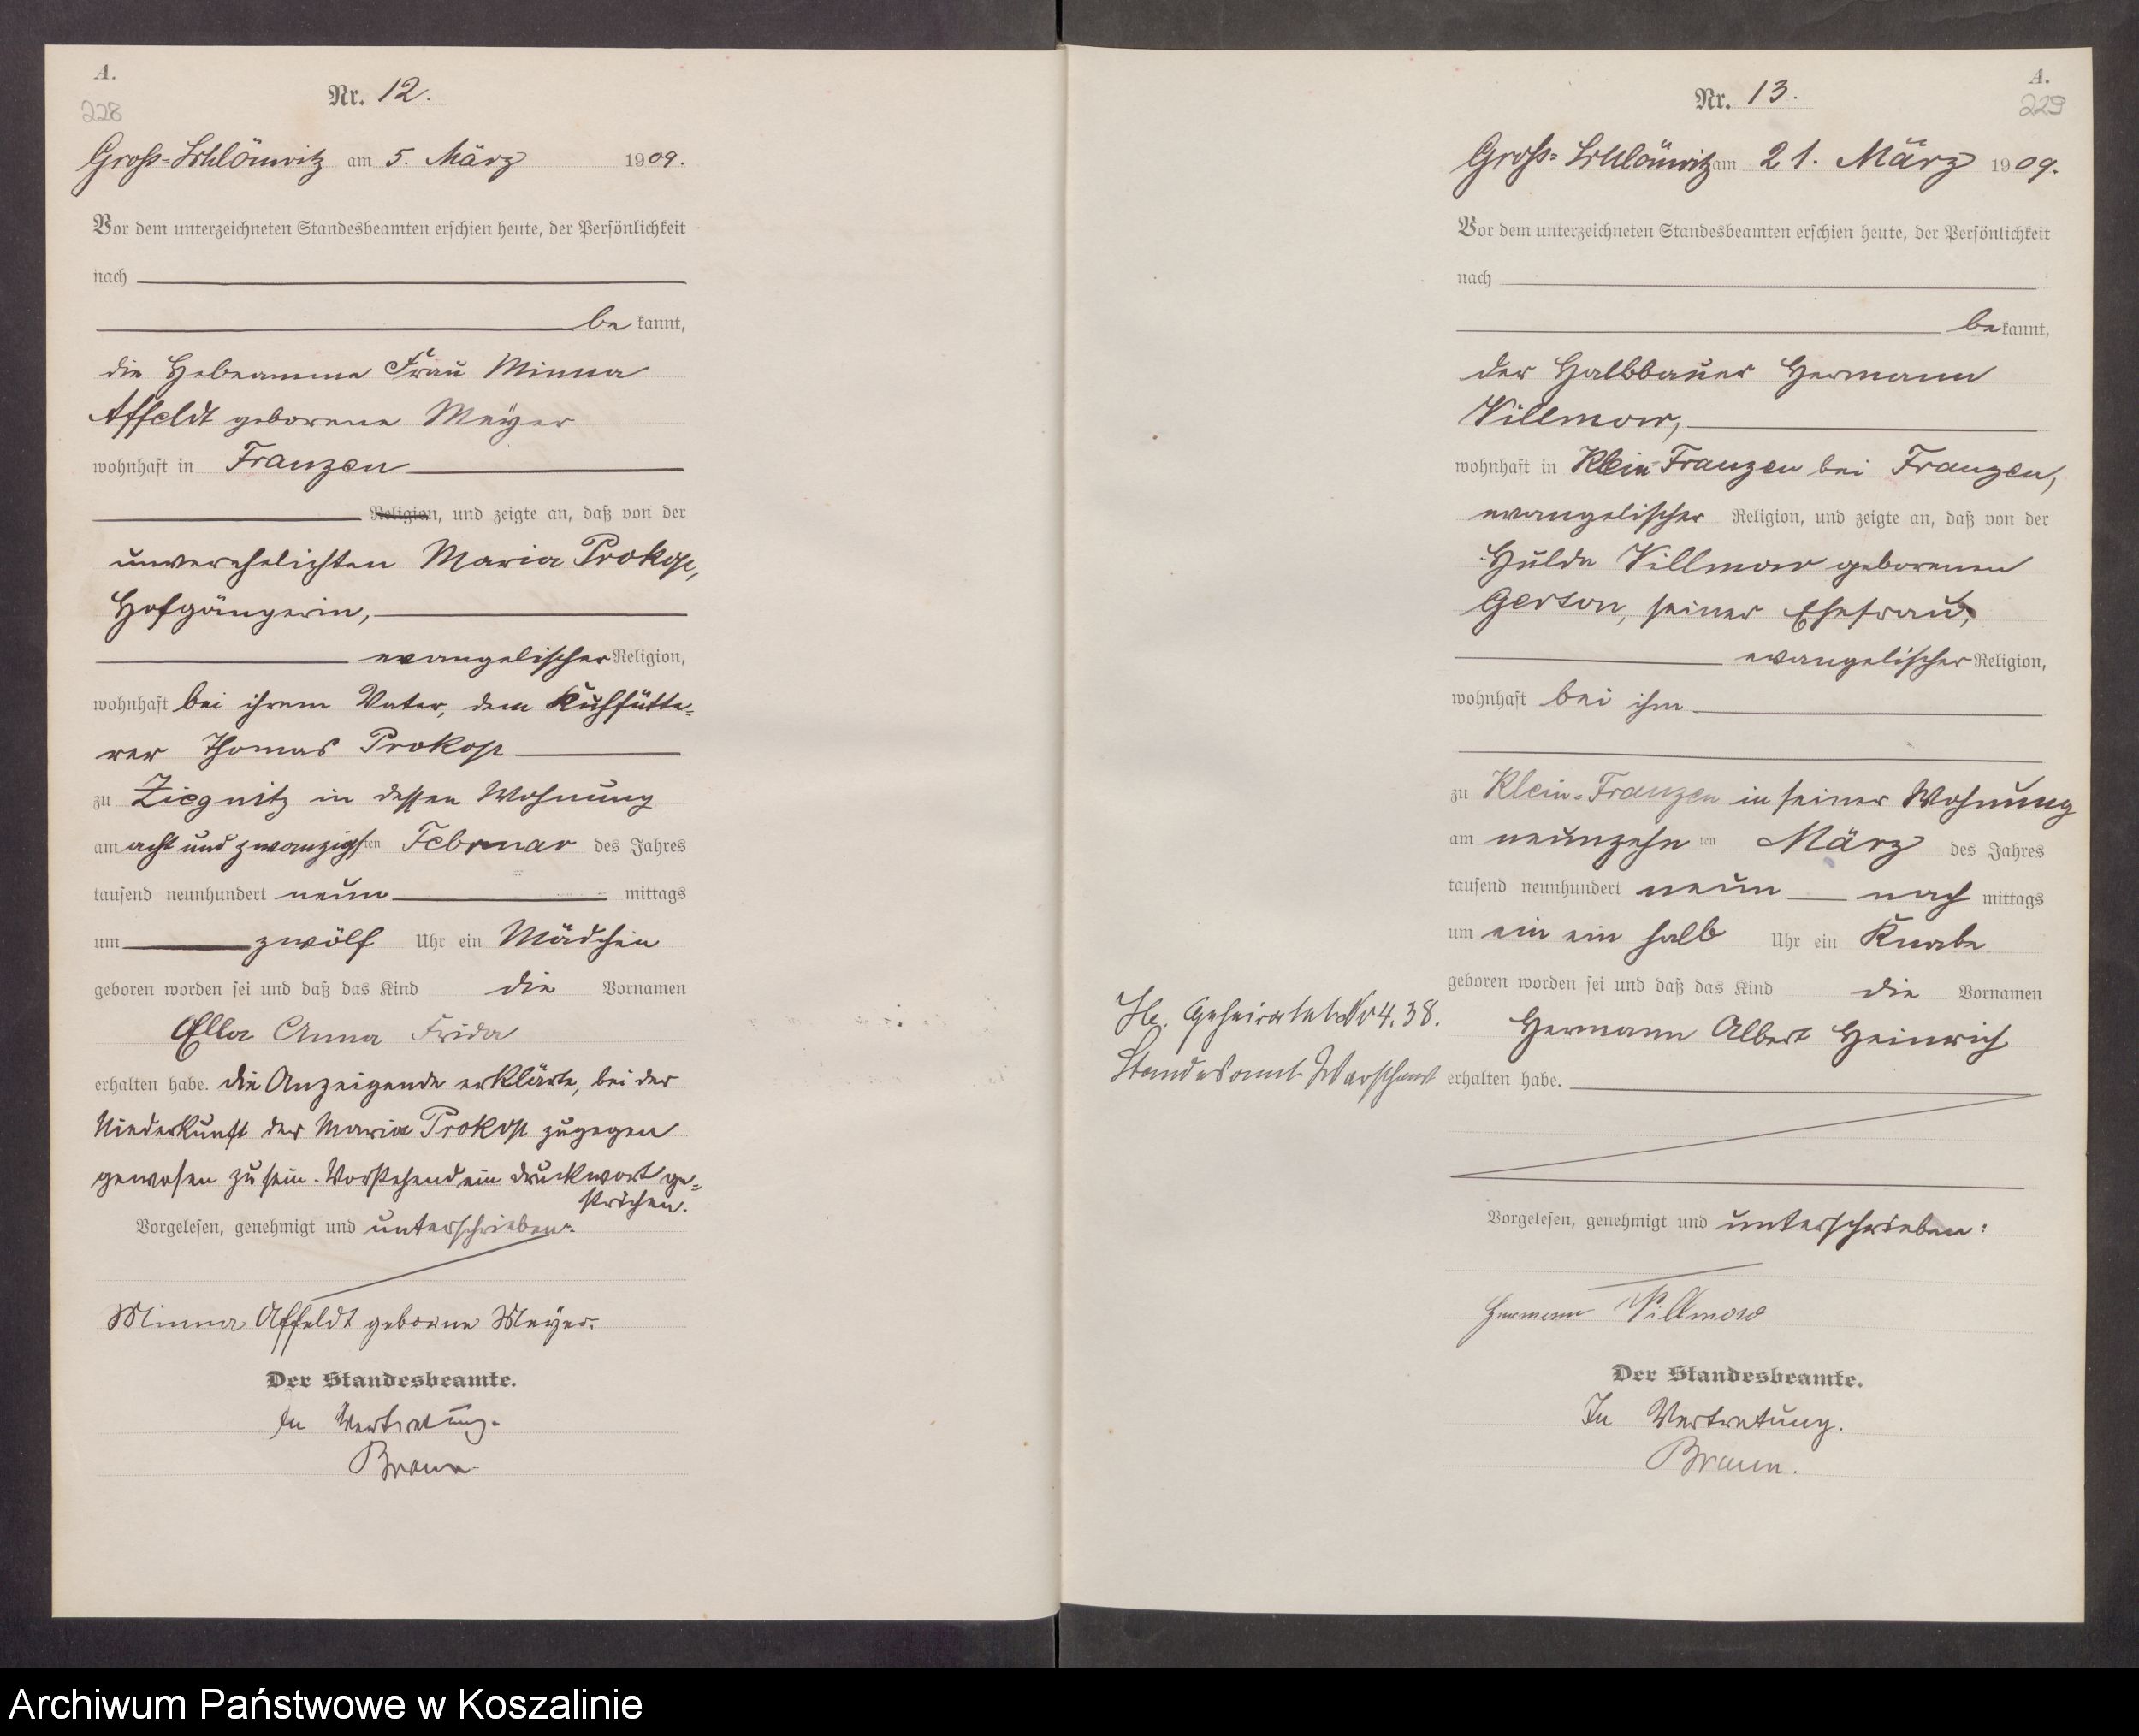 A.
228
Nr. 12.
Groß-Schlönwitz am 5. März 1909.
Vor dem unterzeichneten Standesbeamten erschien heute, der Persönlichkeit
nach
be kannt,
die Hebeamme Frau Minna
Affeldt geborene Meyer
wohnhaft in Franzen
Religion, und zeigte an, daß von der
unverehelichten Maria Prokop,
Hofgängerin,
evangelischer Religion,
wohnhaft bei ihrem Vater, dem Kuhfütte-
rer Thomas Prokop
zu Ziegnitz in dessen Wohnung
am acht und zwanzigsten Februar des Jahres
tausend neunhundert neun mittags
um zwölf Uhr ein Mädchen
geboren worden sei und daß das Kind die Vornamen
Ella Anna Frida
erhalten habe. die Anzeigende erklärte, bei der
Niederkunft der Maria Prokop zugegen
gewesen zu sein. Vorstehend ein Druckwort ge-
strichen.
Vorgelesen, genehmigt und unterschrieben:
Minna Affeldt geborene Meyer.
Der Standesbeamte.
In Vertretung.
Braun.
A.
229
Nr. 13.
Groß-Schlönwitz am 21. März 1909.
Vor dem unterzeichneten Standesbeamten erschien heute, der Persönlichkeit
nach
be kannt,
der Halbbauer Hermann
Villmow,
wohnhaft in Klein Franzen bei Franzen,
evangelischer Religion, und zeigte an, daß von der
Hulda Villmow geborenen
Gerson, seiner Ehefrau,
evangelischer Religion,
wohnhaft bei ihm
zu Klein-Franzen in seiner Wohnung
am neunzehnten März des Jahres
tausend neunhundert neun nach mittags
um ein ein halb Uhr ein Knabe
geboren worden sei und daß das Kind die Vornamen
Hermann Albert Heinrich
erhalten habe.
Geheiratet 4.38.
Standesamt
Vorgelesen, genehmigt und unterschrieben:
Hermann Villmow
Der Standesbeamte.
In Vertretung.
Braun.
Archiwum Państwowe w Koszalinie